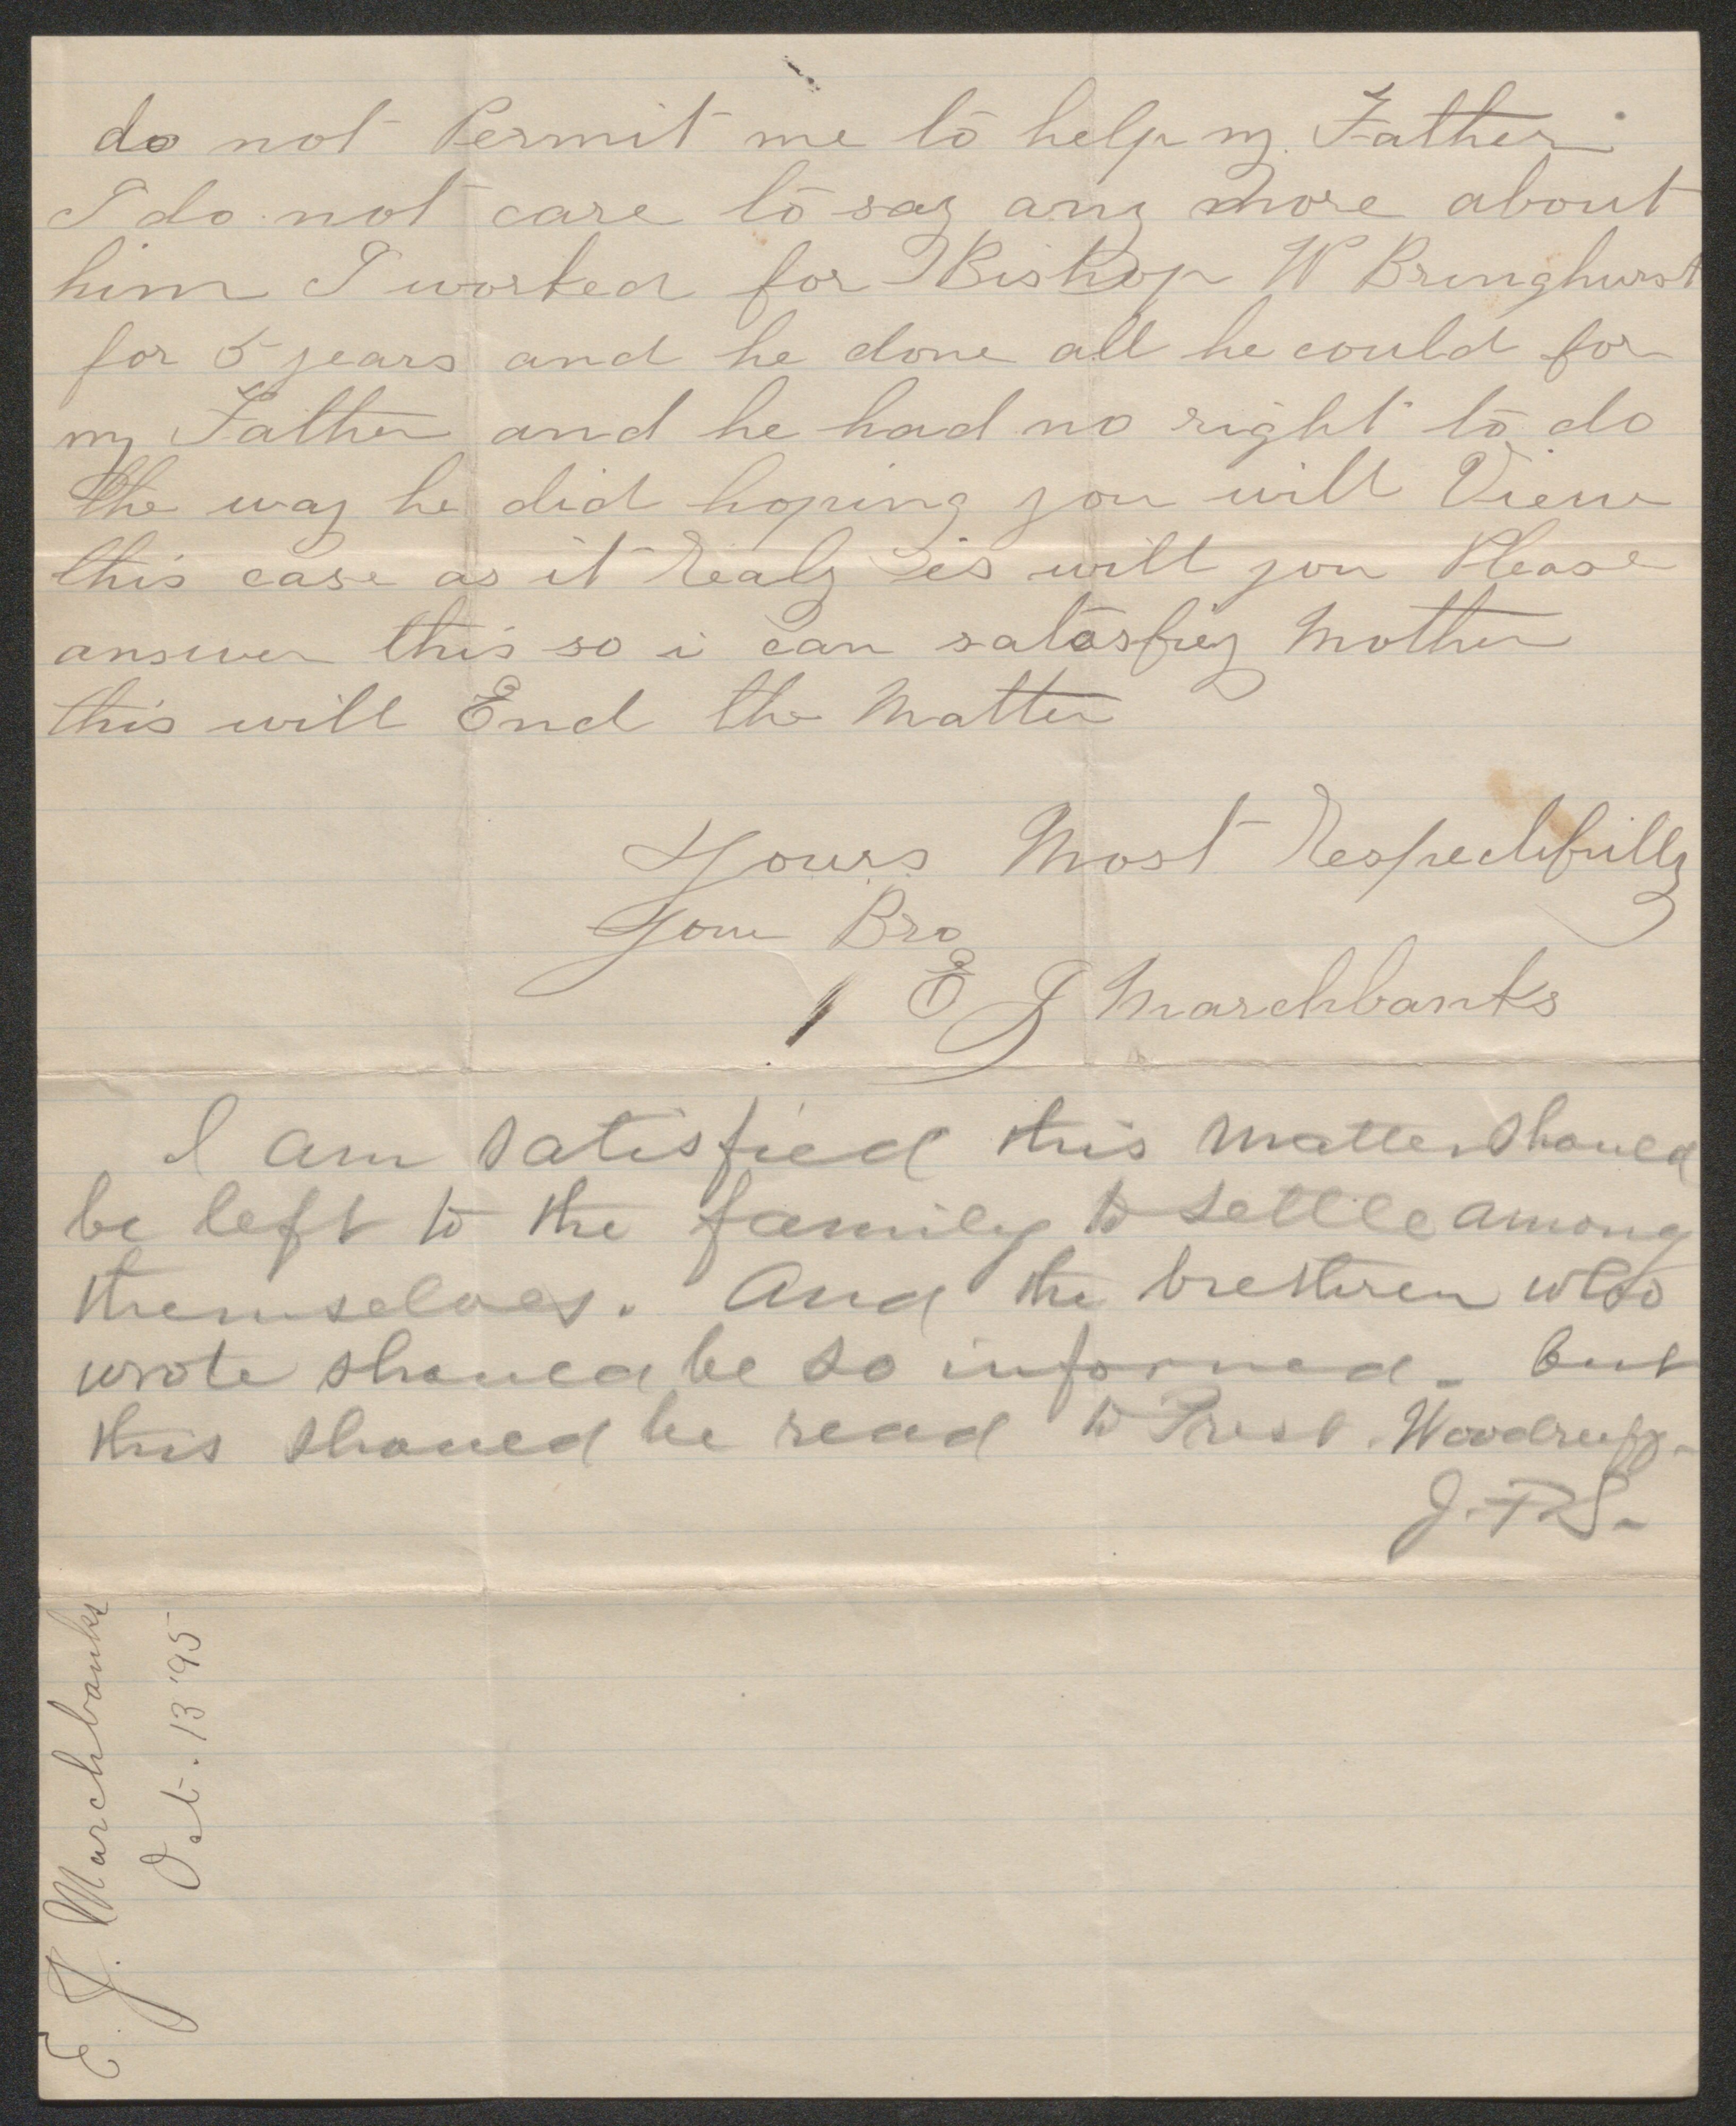 do not Permit me to help my Father
I do not care to say any more about
him I worked for Bishop W Bringhurst
for 5 years and he done all he could for
my Father and he had no right to do
the way he did hoping you will View
this case as it realy is will you Please
answer this so i can satasfiey Mother
this will End the Matter
Yours Most Respectifully
Your Bro
E J Marchbanks
I am satisfied this matter should
be left to the family to settle among
themselves. And the brethren who
wrote should be so informed - but
this should be read to Prest. Woodruff-
J.F.S.
E. J. Marchbanks
Oct. 13 '95